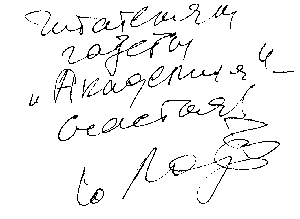 Читателям
газеты
"Академия" –
счастья!